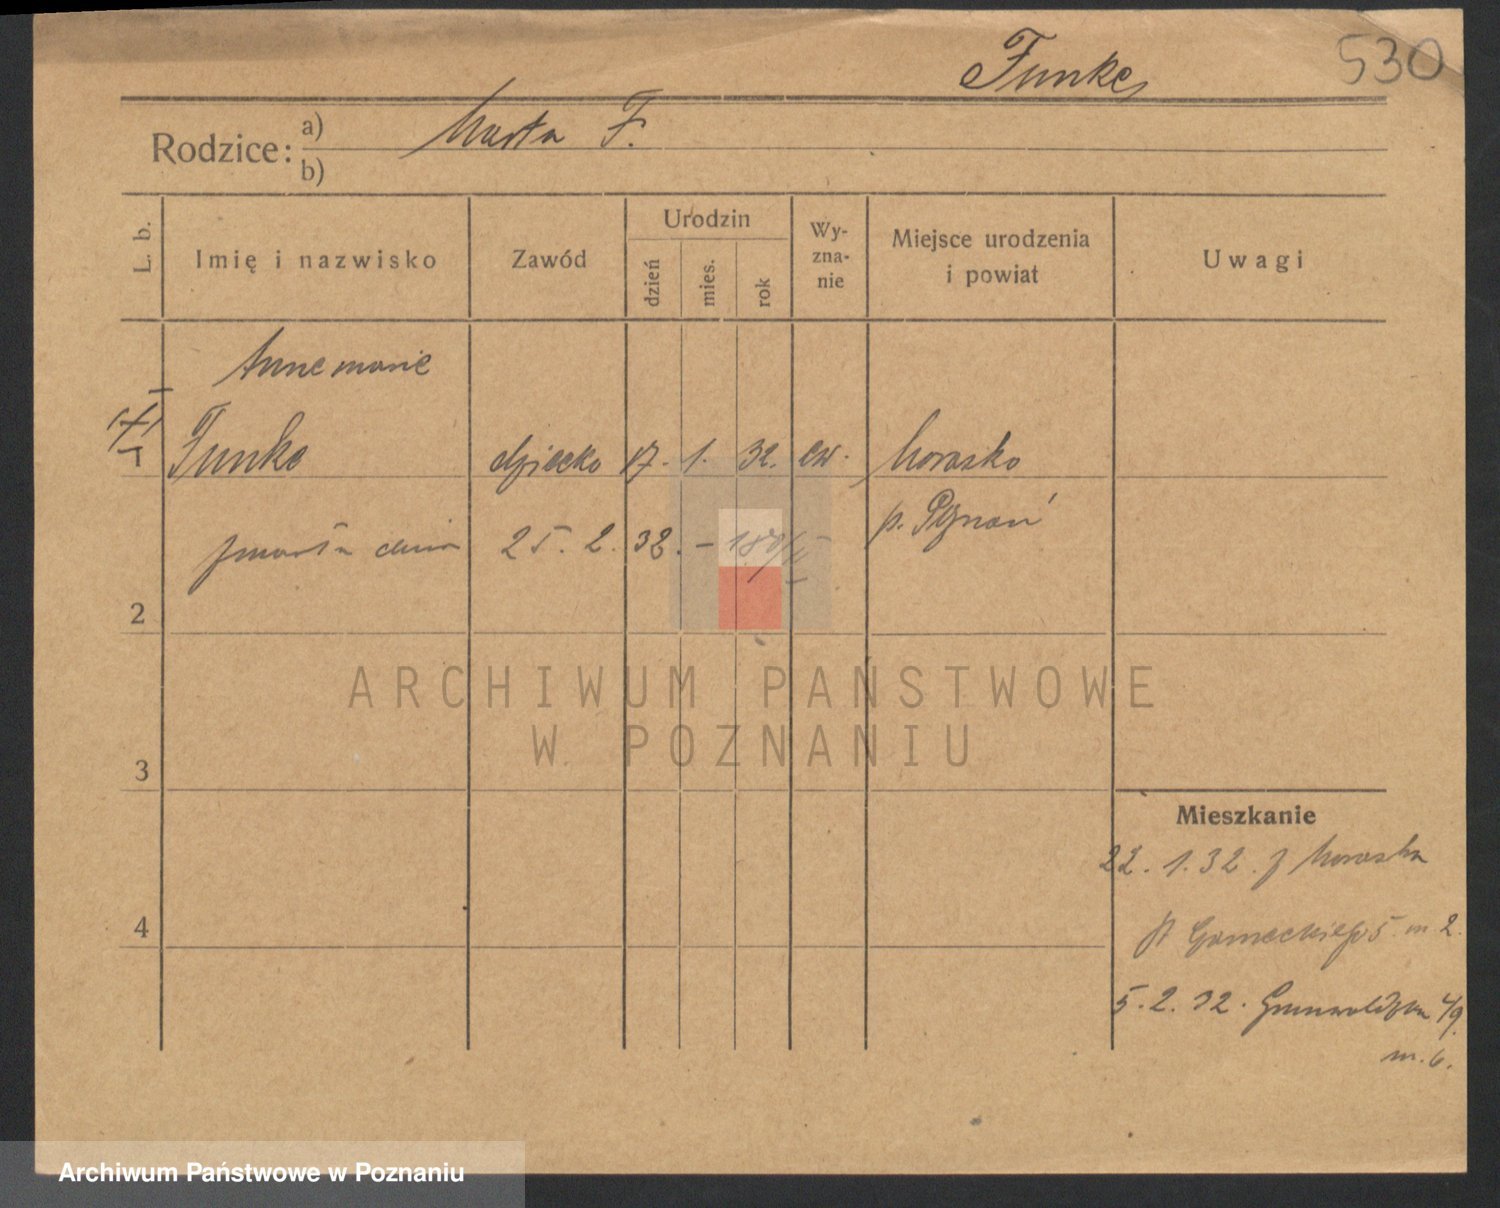 Funke
530
Rodzice: a) Marta F.
b)
L. b. Imię i nazwisko Zawód Urodzin dzień mies. rok Wy-zna-nie Miejsce urodzenia i powiat Uwagi
Annemarie
Funke dziecko 17. 1. 32. ew. Morasko
p. Poznań
zmarła dnia 25. 2. 32. –
2
3
4
Mieszkanie
22. 1. 32. z Moraska
5. m 2.
5. 2. 32. Grunwaldzka
m. 6.
ARCHIWUM PAŃSTWOWE
W POZNANIU
Archiwum Państwowe w Poznaniu